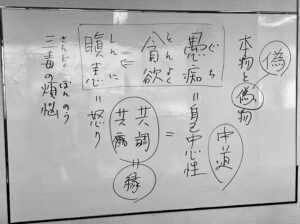 偽
本物と偽物
中道
ぐち
愚痴＝自己中心性
とんよく
貪欲
＝
共調
＝
縁
↓
しんに
瞋恚＝怒り
三毒の煩悩
さんどく ぼんのう